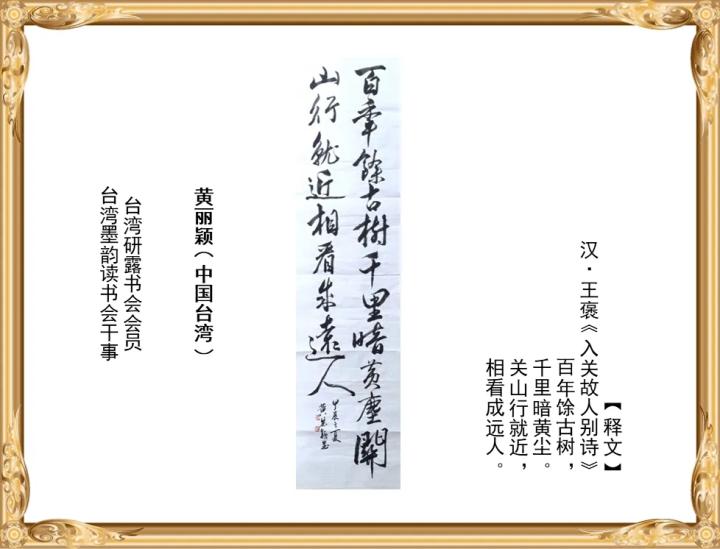 【释文】
汉·王褒《入关故人别诗》
百年馀古树，
千里暗黄尘。
关山行就近，
相看成远人。
百年餘古樹千里暗黃塵關
山行就近相看成遠人
甲辰之夏
黃麗穎書
黄丽颖（中国台湾）
台湾研露书会会员
台湾墨韵读书会干事